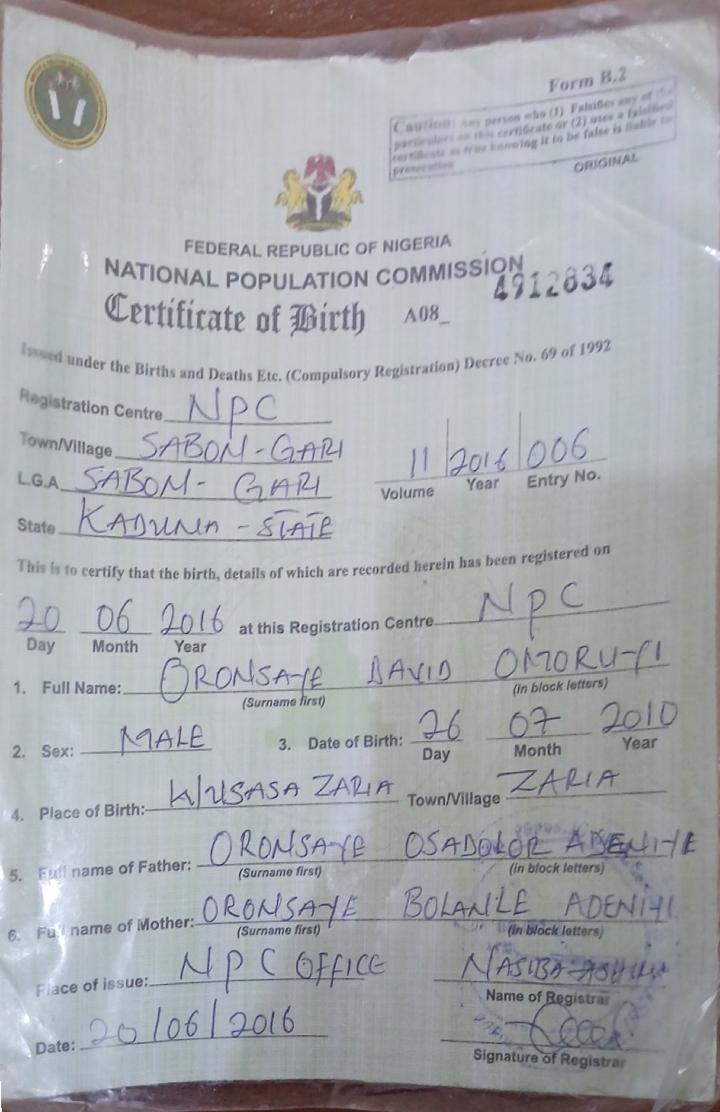 Form B.2
Caution: Any person who (1) Falsifies any of the
particulars on this certificate or (2) uses a falsified
certificate as true knowing it to be false is liable to
prosecution
ORIGINAL
FEDERAL REPUBLIC OF NIGERIA
NATIONAL POPULATION COMMISSION
Certificate of Birth A08_ 4912834
Issued under the Births and Deaths Etc. (Compulsory Registration) Decree No. 69 of 1992
Registration Centre NPC
Town/Village SABON-GARI
L.G.A SABON-GARI
11 2016 006
Volume Year Entry No.
State KADUNA-STATE
This is to certify that the birth, details of which are recorded herein has been registered on
20 06 2016 at this Registration Centre NPC
Day Month Year
1. Full Name: ORONSAYE DAVID OMORUYI
(Surname first) (in block letters)
2. Sex: MALE 3. Date of Birth: 26 07 2010
Day Month Year
4. Place of Birth: W/USASA ZARIA Town/Village ZARIA
5. Full name of Father: ORONSAYE OSADOLOR
(Surname first) (in block letters)
6. Full name of Mother: ORONSAYE BOLANLE ADENIYI
(Surname first) (in block letters)
Place of issue: NPC OFFICE
Name of Registrar
Date: 20/06/2016
Signature of Registrar